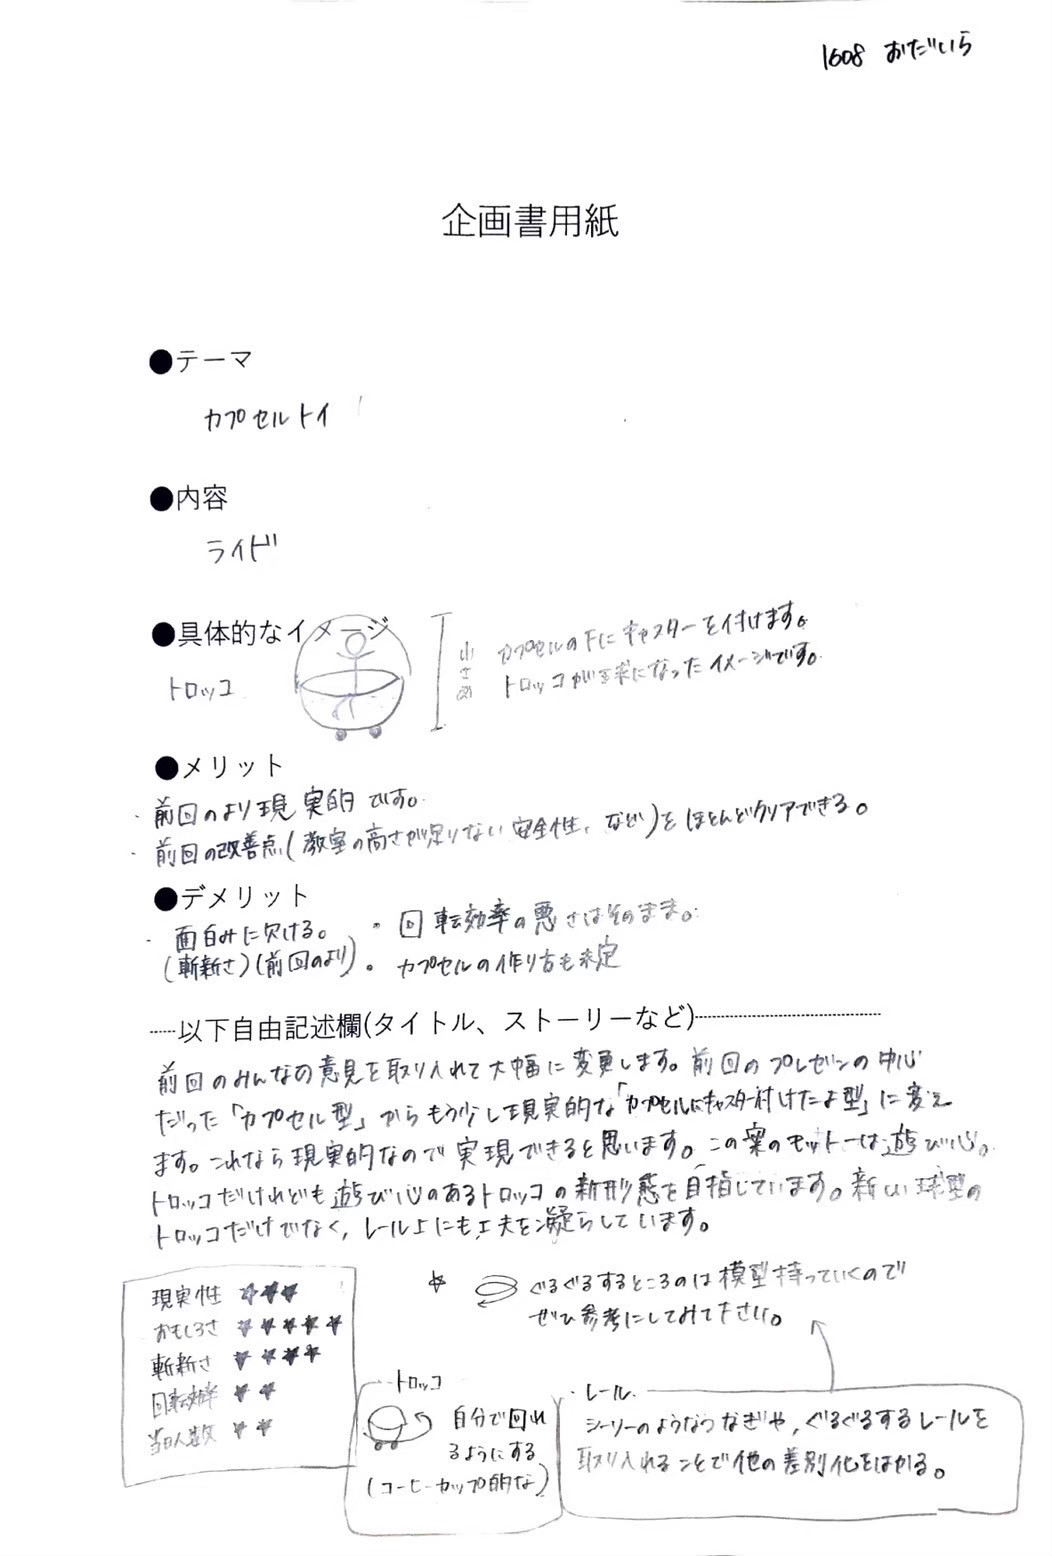 1608 おだいら
企画書用紙
●テーマ
カプセルトイ
●内容
ライド
●具体的なイメージ
トロッコ
小さめ
カプセルの下にキャスターを付けます。
トロッコが球になったイメージです。
●メリット
・前回のより現実的です。
・前回の改善点(教室の高さが足りない 安全性、など)をほとんどクリアできる。
●デメリット
・面白みに欠ける。
(斬新さ)(前回のより)
・回転効率の悪さはそのまま。
・カプセルの作り方も未定
以下自由記述欄(タイトル、ストーリーなど)
前回のみんなの意見を取り入れて大幅に変更します。前回のプレゼンの中心
だった「カプセル型」からもう少し現実的な「カプセルにキャスター付けたよ型」に変え
ます。これなら現実的なので実現できると思います。この案のモットーは遊び心。
トロッコだけれども遊び心のあるトロッコの新形態を目指しています。新しい球型の
トロッコだけでなく、レール上にも工夫を凝らしています。
現実性 ★★★
おもしろさ ★★★★★
斬新さ ★★★★
回転効率 ★★
当日人数 ★★
☆ ぐるぐるするところのは模型持っていくので
ぜひ参考にしてみて下さい。
トロッコ
自分で回れ
るようにする
(コーヒーカップ的な)
レール
シーソーのようなつなぎや、ぐるぐるするレールを
取り入れることで他の差別化をはかる。